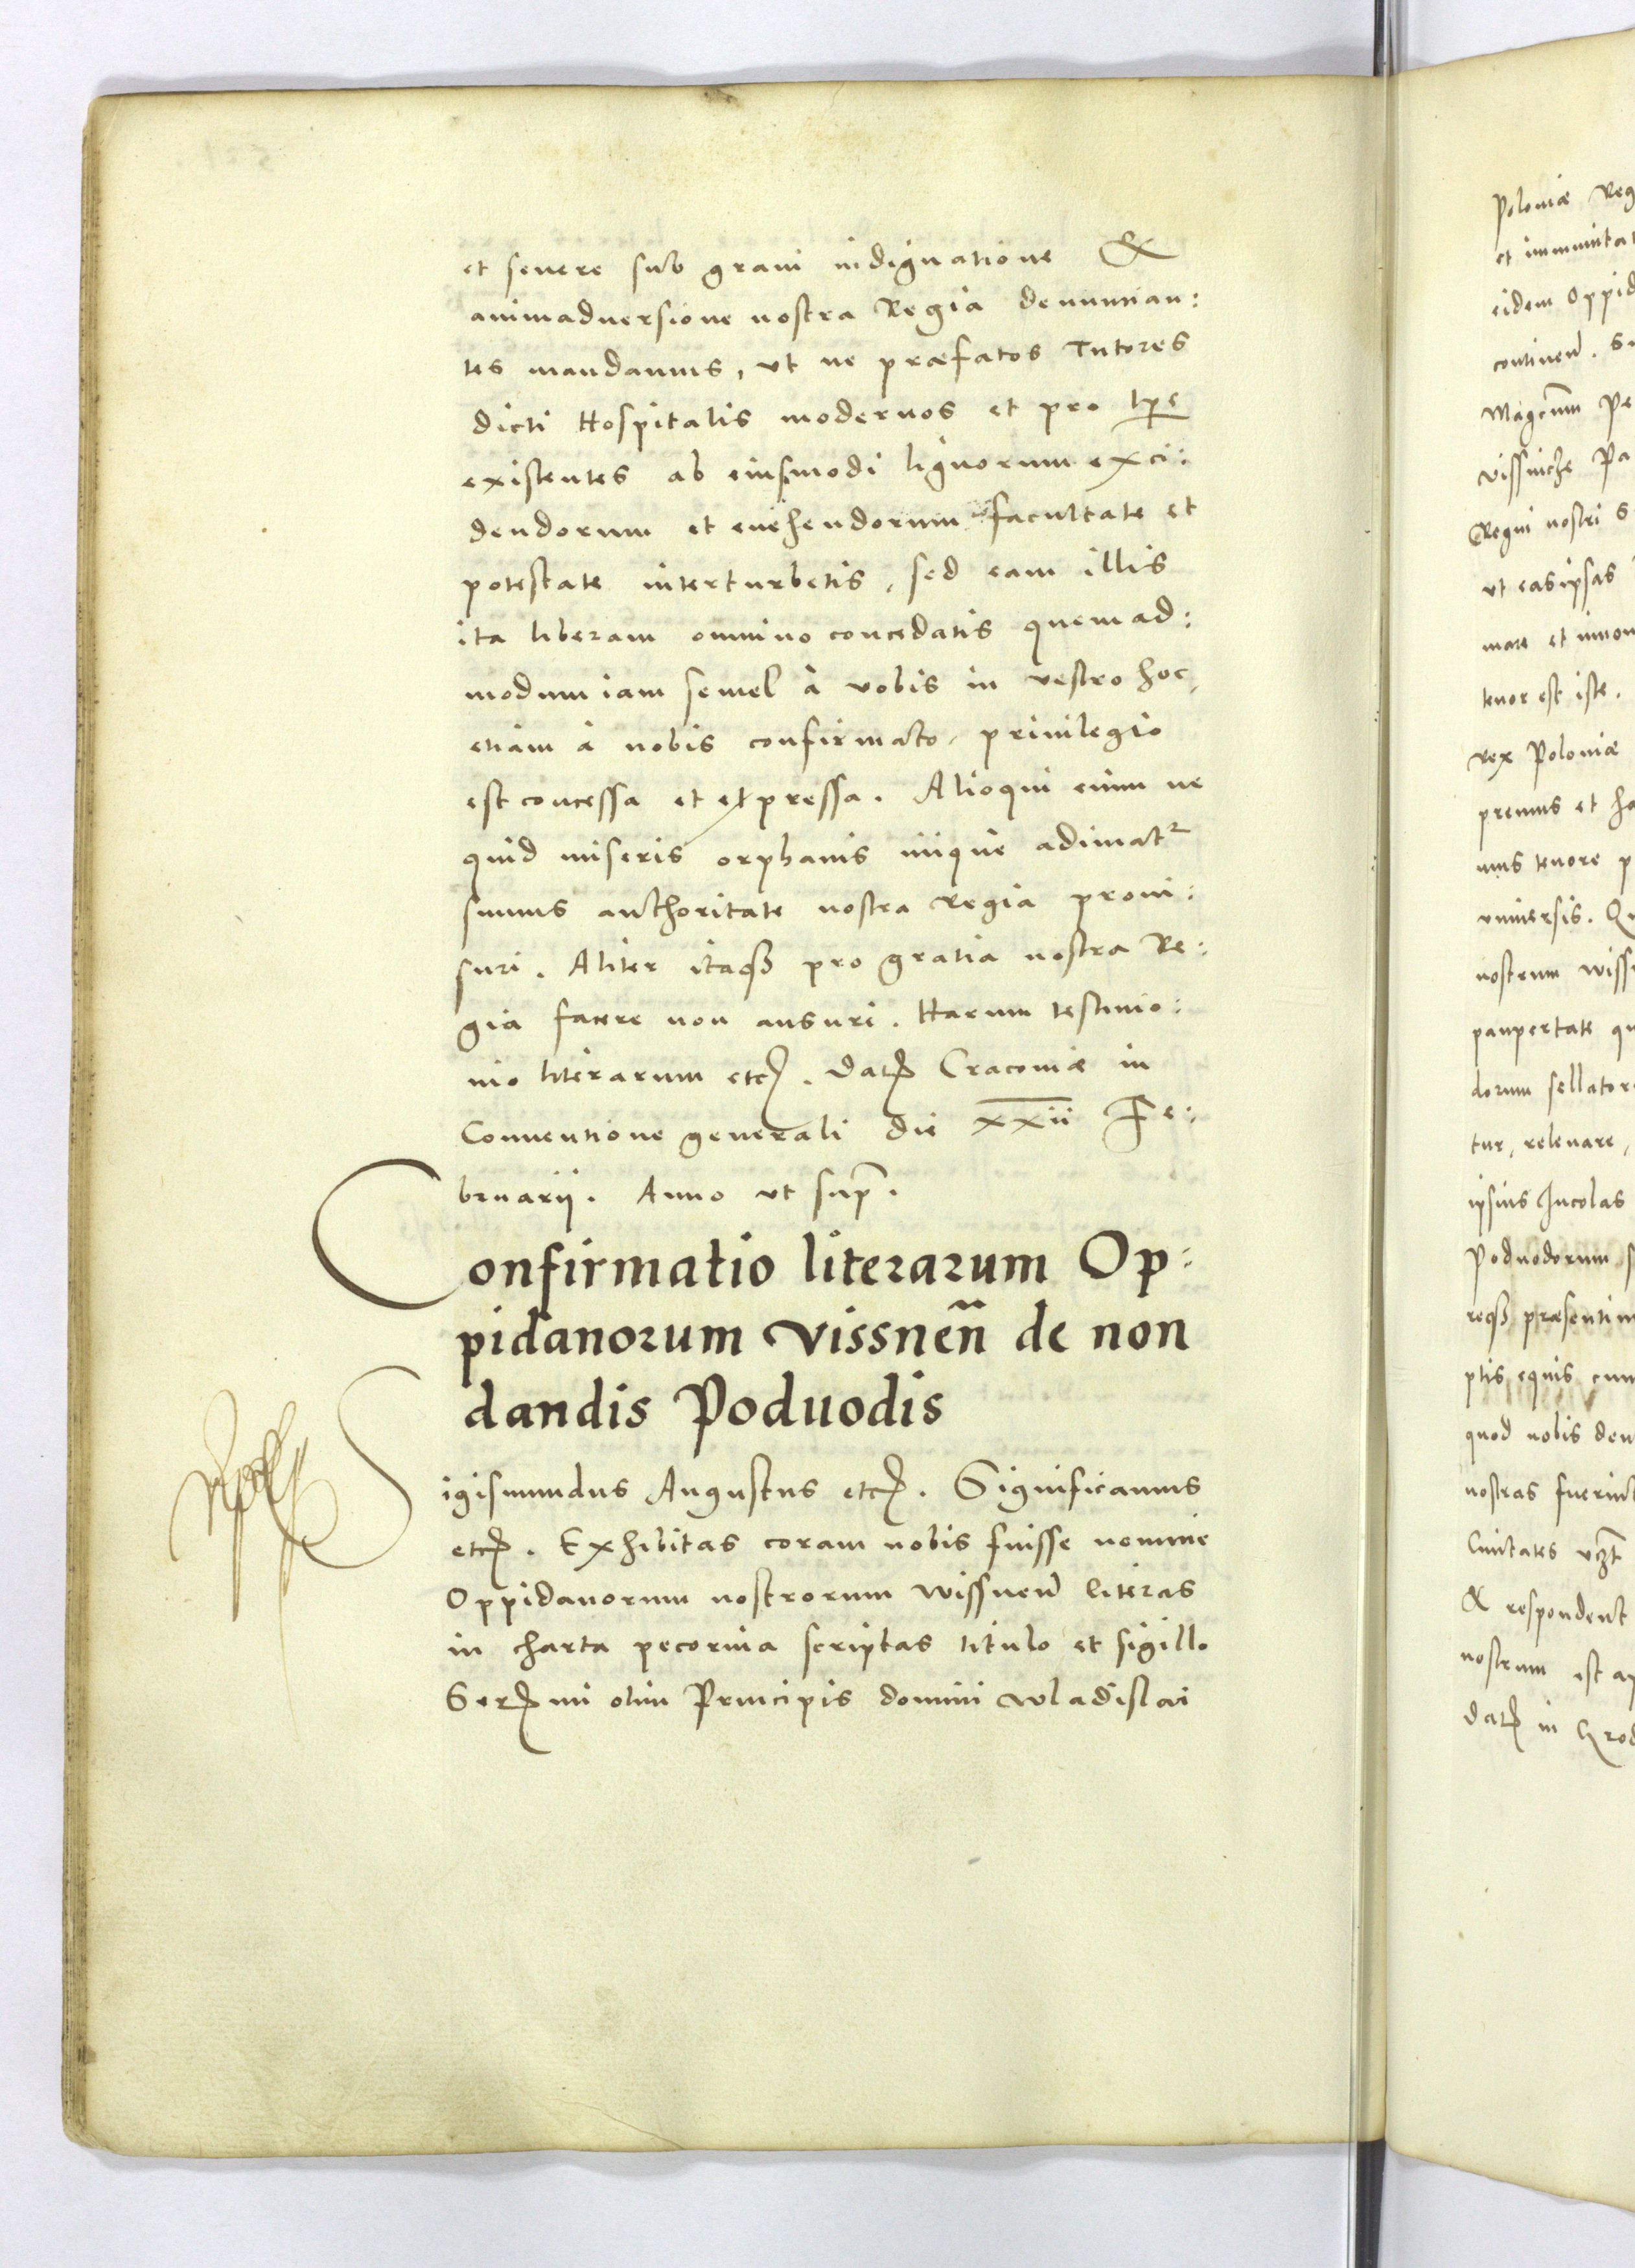 et seuere sub graui indignatione &
animaduersione nostra Regia denuncian:
tes mandamus, ut ne præfatos Tutores
dicti Hospitalis modernos et pro tpe
existentes ab eiusmodi lignorum exci:
dendorum et euehendorum facultate et
potestate interturbetis, sed eam illis
ita liberam omnino concedatis quemad:
modum iam semel à vobis in vestro hoc,
etiam à nobis confirmato, priuilegio
est concessa et expressa. Alioqui enim ne
quid miseris orphanis iniquè adimatr
sumus authoritate nostra Regia proui:
suri. Aliter itaqȝ pro gratia nostra Re:
gia facere non ausuri. Harum testimo:
nio literarum etc. Dat Cracouiæ in
Conuentione generali die xxii Fe:
bruarii. Anno ut sup.
Confirmatio literarum Op:
pidanorum Vissneñ de non
dandis Poduodis
Sigismundus Augustus etc. Significamus
etc. Exhibitas coram nobis fuisse nomine
Oppidanorum nostrorum Wissneñ literas
in charta pecorina scriptas titulo et sigillo
Sermi olim Principis domini Wladislai
Poloniæ Reg
et immunitat
eidem Oppid
contineñ. S
Magcum Pe
Vissniche Pa
Regni nostri S
ut eas ipsas
mare et innou
tenor est iste.
Rex Poloniæ
premus et ha
mus tenore p
vniuersis. Q
nostrum Wiss
paupertate qu
dorum sellator
tur, releuare,
ipsius Incolas
Poduodorum s
reqȝ præsentim
ptis equis cum
quod nobis den
nostras fuerint
Ciuitates vȝt
& respondent
nostrum est ap
Dat in Grod